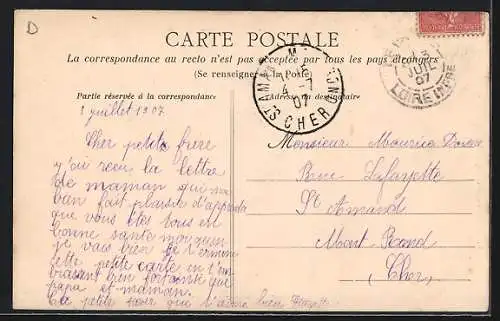 D
CARTE POSTALE
La correspondance au recto n'est pas acceptée par tous les pays étrangers
(Se renseigner à la Poste)
Partie réservée à la correspondance
Adresse du destinataire
1 juillet 1907
Cher petite frère
j'ai recu la lettre
de maman qui ma
bien fait plaisir d'apprendre
que vous êtes tous en
bonne santé moi
je vais bien je termine
cette petite carte en
bien fort
papa et maman
ta petite soeur qui t'aime bien
Monsieur Maurice
Rue Lafayette
St Amand
Mont Rond
(Cher)
4 -7
07
CHER
JUIL
07